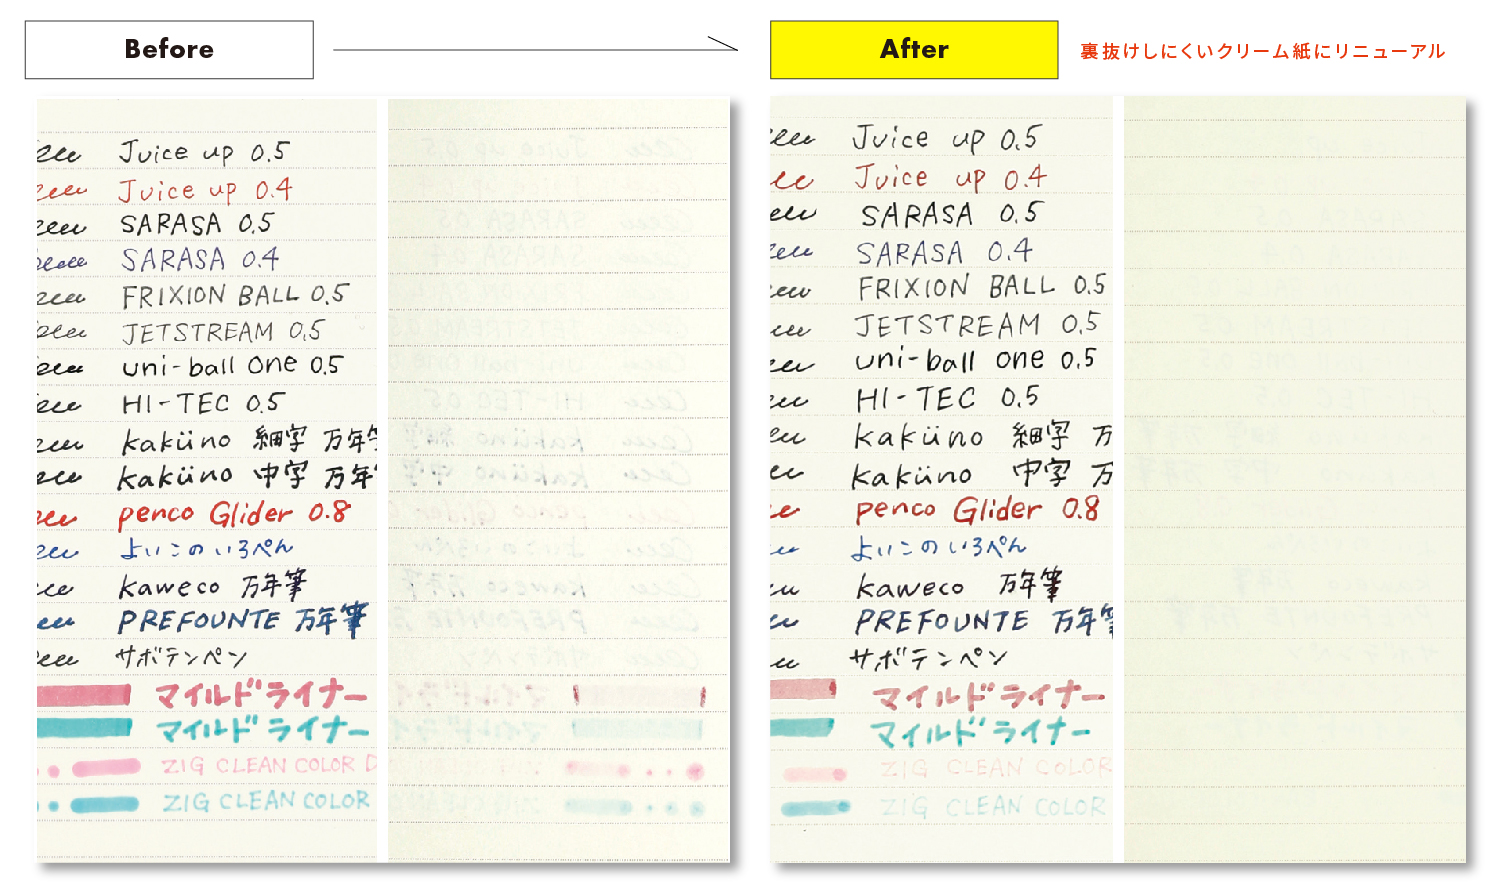 Before
After
裏抜けしにくいクリーム紙にリニューアル
Juice up 0.5
Juice up 0.4
SARASA 0.5
SARASA 0.4
FRIXION BALL 0.5
JETSTREAM 0.5
uni-ball one 0.5
HI-TEC 0.5
kaküno 細字 万年
kaküno 中字 万年
penco Glider 0.8
よいこのいろぺん
kaweco 万年筆
PREFOUNTE 万年筆
サボテンペン
マイルドライナー
マイルドライナー
ZIG CLEAN COLOR D
ZIG CLEAN COLOR
Juice up 0.5
Juice up 0.4
SARASA 0.5
SARASA 0.4
FRIXION BALL 0.5
JETSTREAM 0.5
uni-ball one 0.5
HI-TEC 0.5
kaküno 細字 万
kaküno 中字 万
penco Glider 0.8
よいこのいろぺん
kaweco 万年筆
PREFOUNTE 万年筆
サボテンペン
マイルドライナー
マイルドライナー
ZIG CLEAN COLOR
ZIG CLEAN COLOR